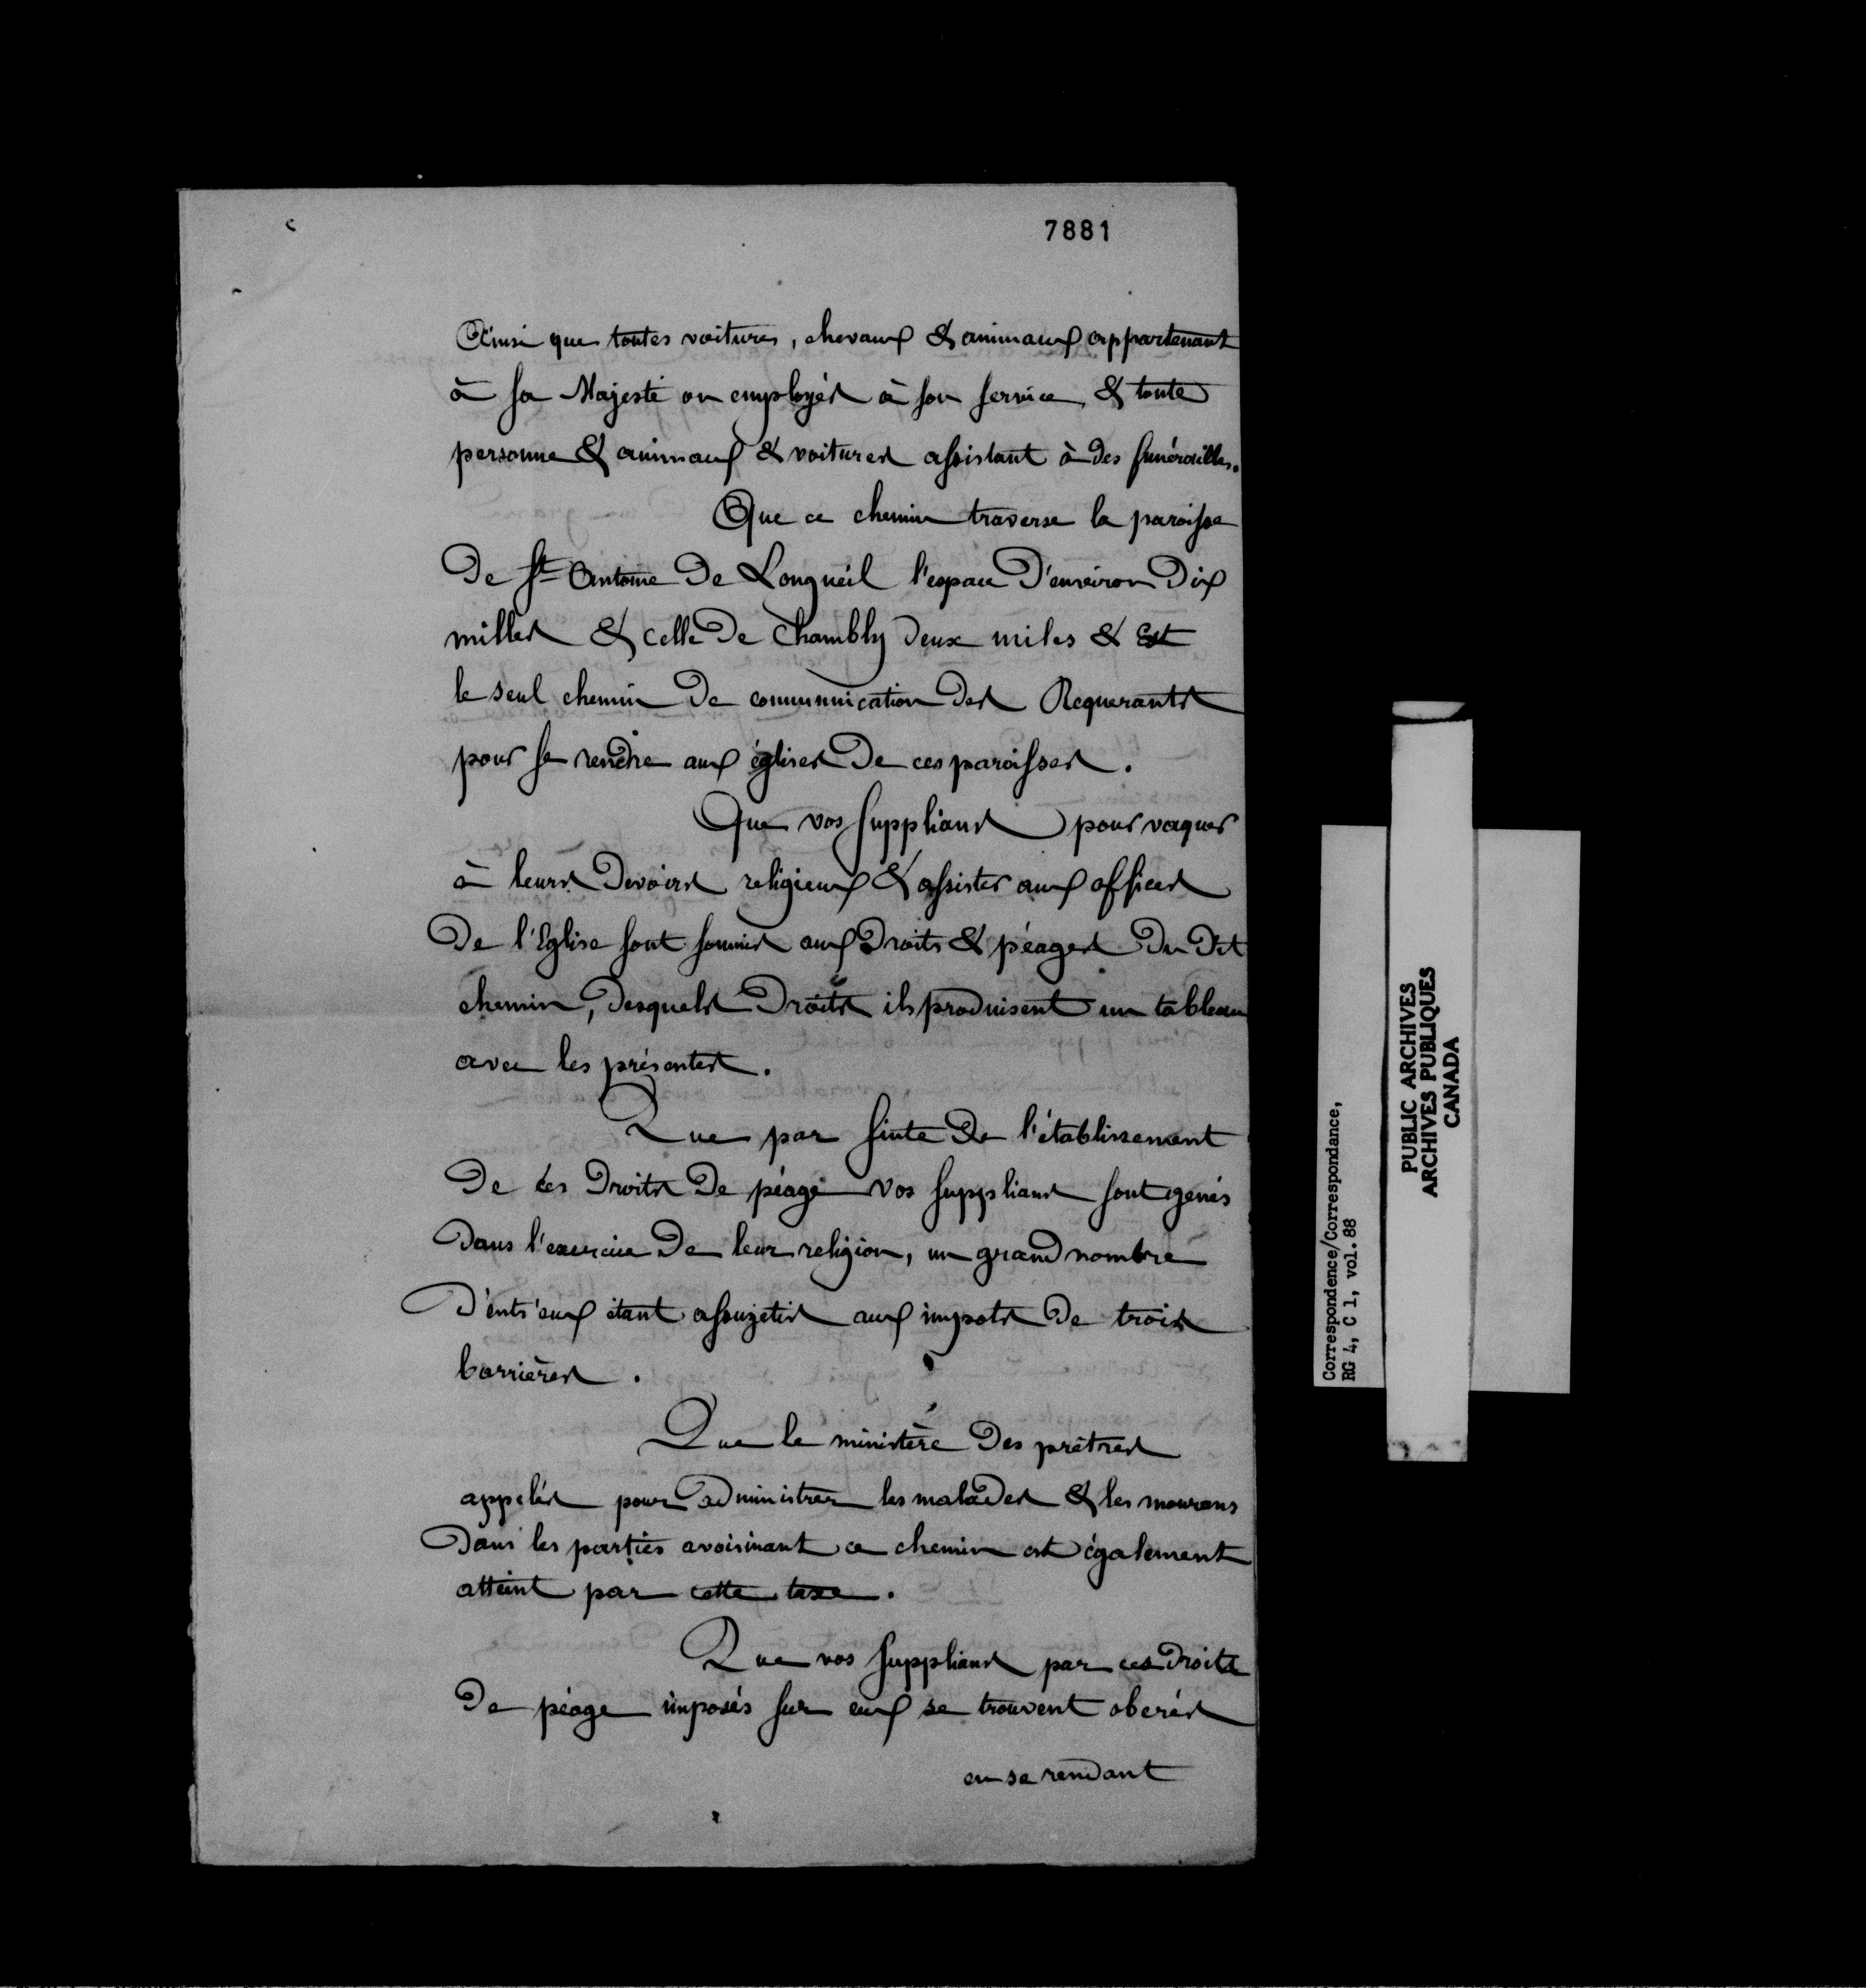 7881
Ainsi que toutes voitures, chevaux & animaux appartenant
à sa Majesté ou employés à son service, & toute
personne & animaux & voitures assistant à des funérailles.
Que ce chemin traverse la paroisse
De St Antoine De Longueil l'espace D'environ Dix
milles & celle De Chambly Deux miles & Est
le seul chemin De communication Des Requerants
pour se rendre aux églises De ces paroisses.
Que vos supplians pour vaquer
à leurs Devoirs religieux & assister aux offices
De l'Eglise sont soumis aux Droits & péages Du Dit
chemin, Desquels Droits ils produisent un tableau
avec les présentes.
Que par suite De l'établissement
De ces Droits De péage vos supplians sont genés
Dans l'exercice De leur religion, un grand nombre
D'entr'eux étant assujetis aux impots De trois
barrières.
Que le ministère Des prêtres
appelés pour administrer les malades & les mourans
Dans les parties avoisinant ce chemin est également
atteint par cette taxe.
Que vos supplians par ces Droits
De péage imposés sur eux se trouvent oberés
en se rendant
Correspondence/Correspondance,
RG 4, C 1, vol. 88
PUBLIC ARCHIVES
ARCHIVES PUBLIQUES
CANADA